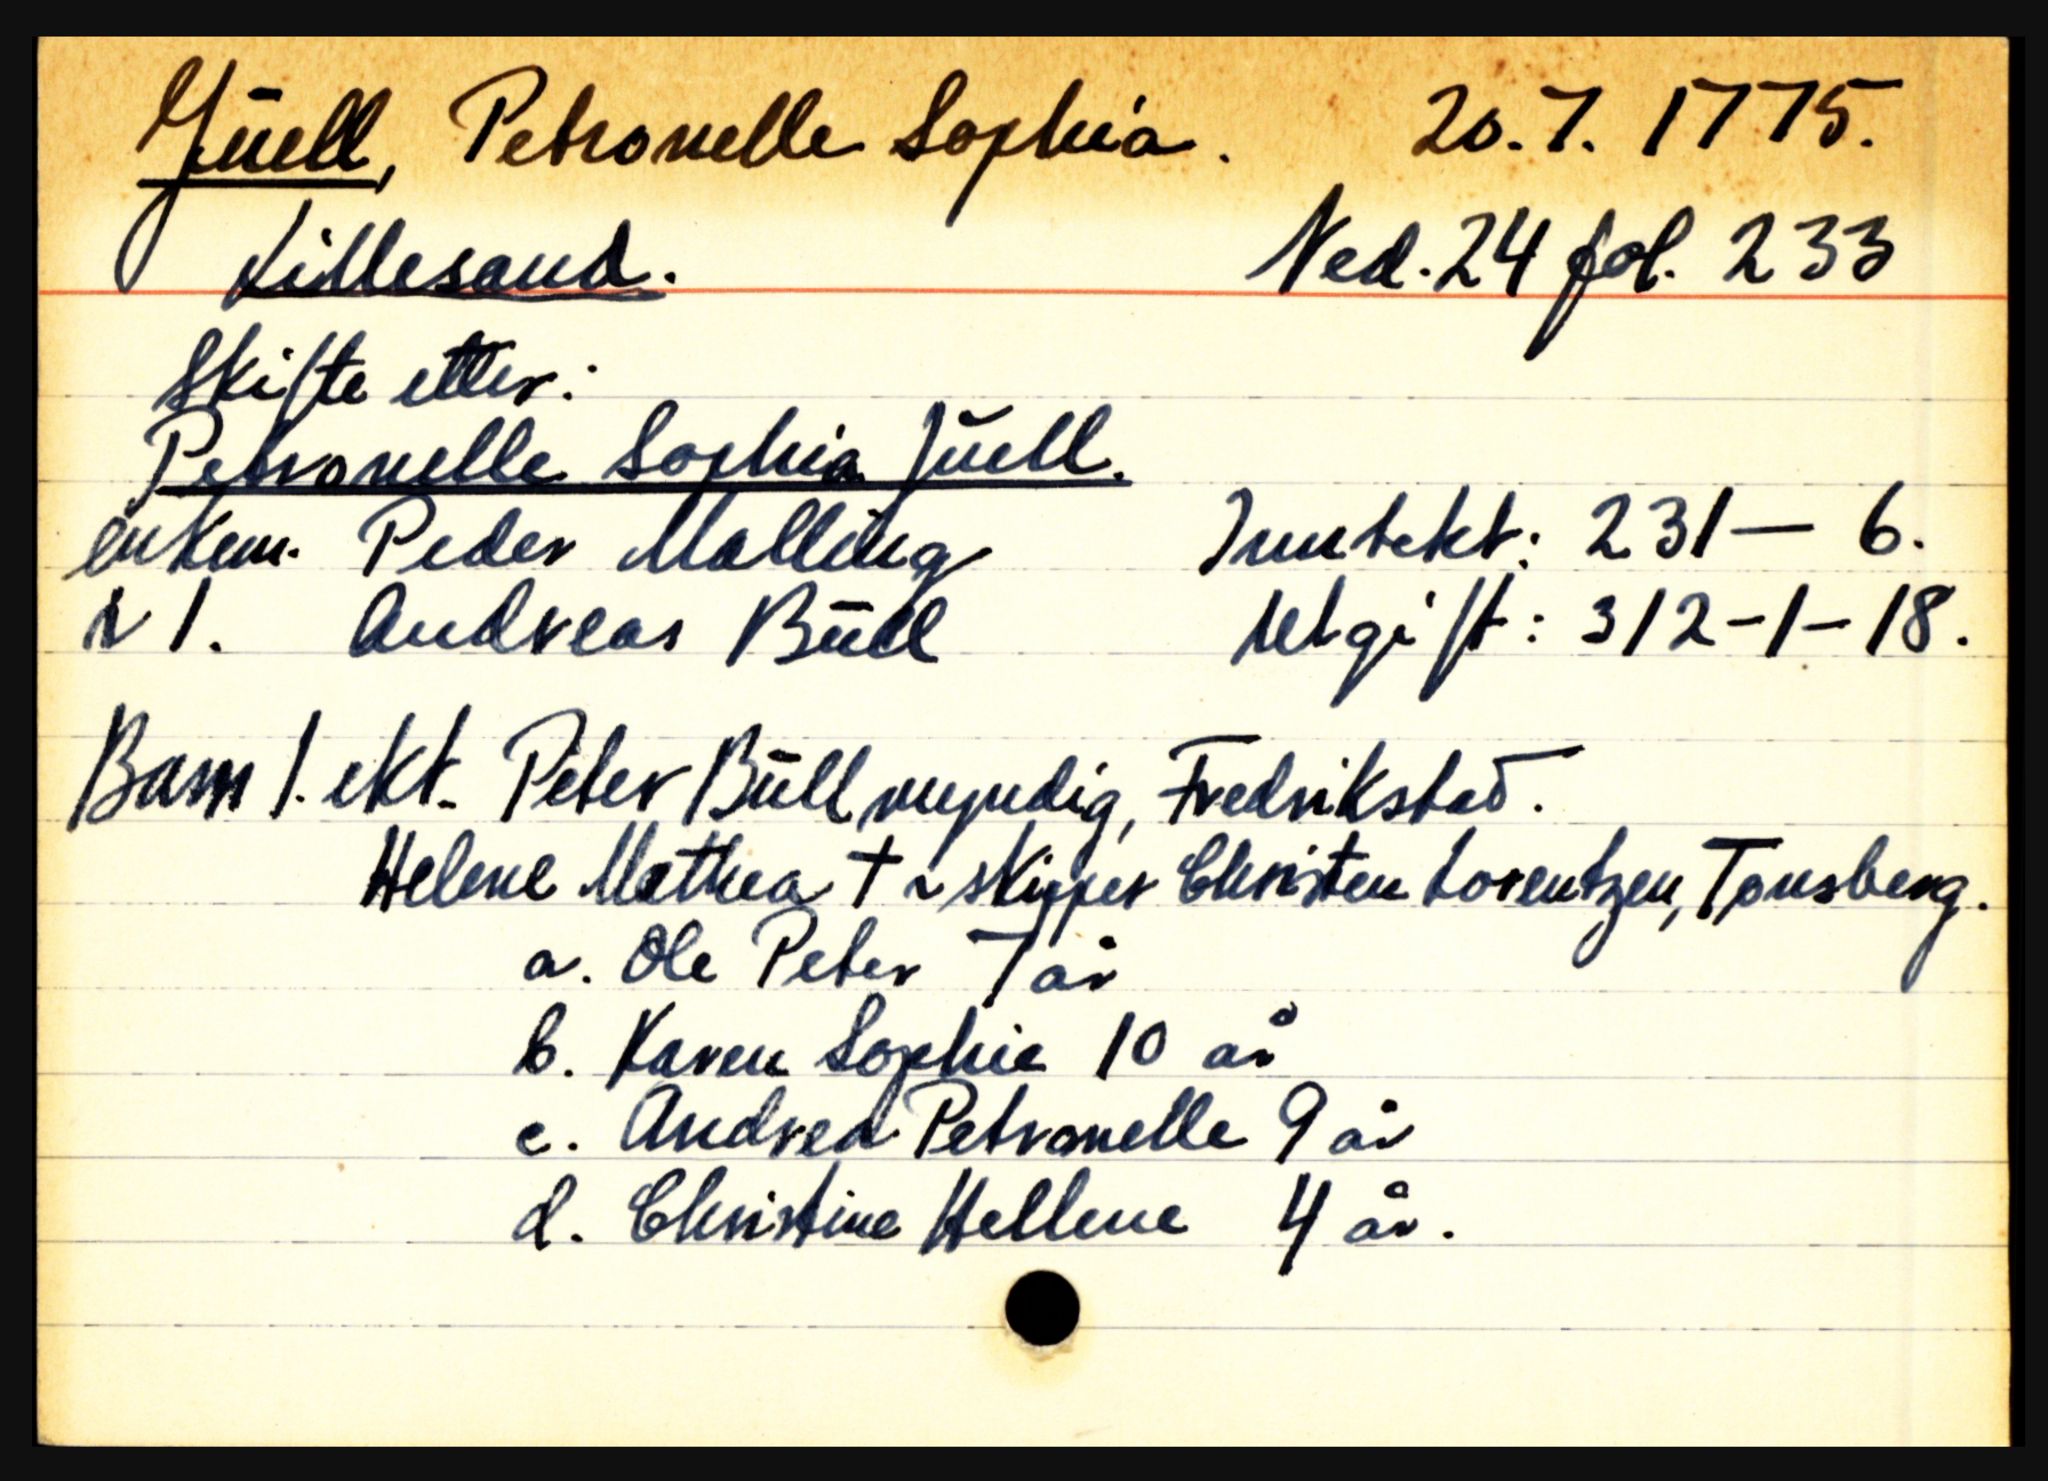 Jūell, Petronelle Sophia. 20.7.1775.
Lillesand. Ned. 24 fol. 233
Skifte etter:
Petronelle Sophia Jūell.
enkem. Peder Malling Inntekt: 231 — 6.
~ 1. Andreas Būll Utgift: 312-1-18.
Barn 1. ekt. Peter Būll myndig, Fredrikstad.
Helene Mathea † ~ skipper Christen Lorentzen, Tønsberg.
a. Ole Peter 7 år
b. Karen Sophie 10 år
c. Andrea Petronelle 9 år
d. Christine Hellene 4 år.